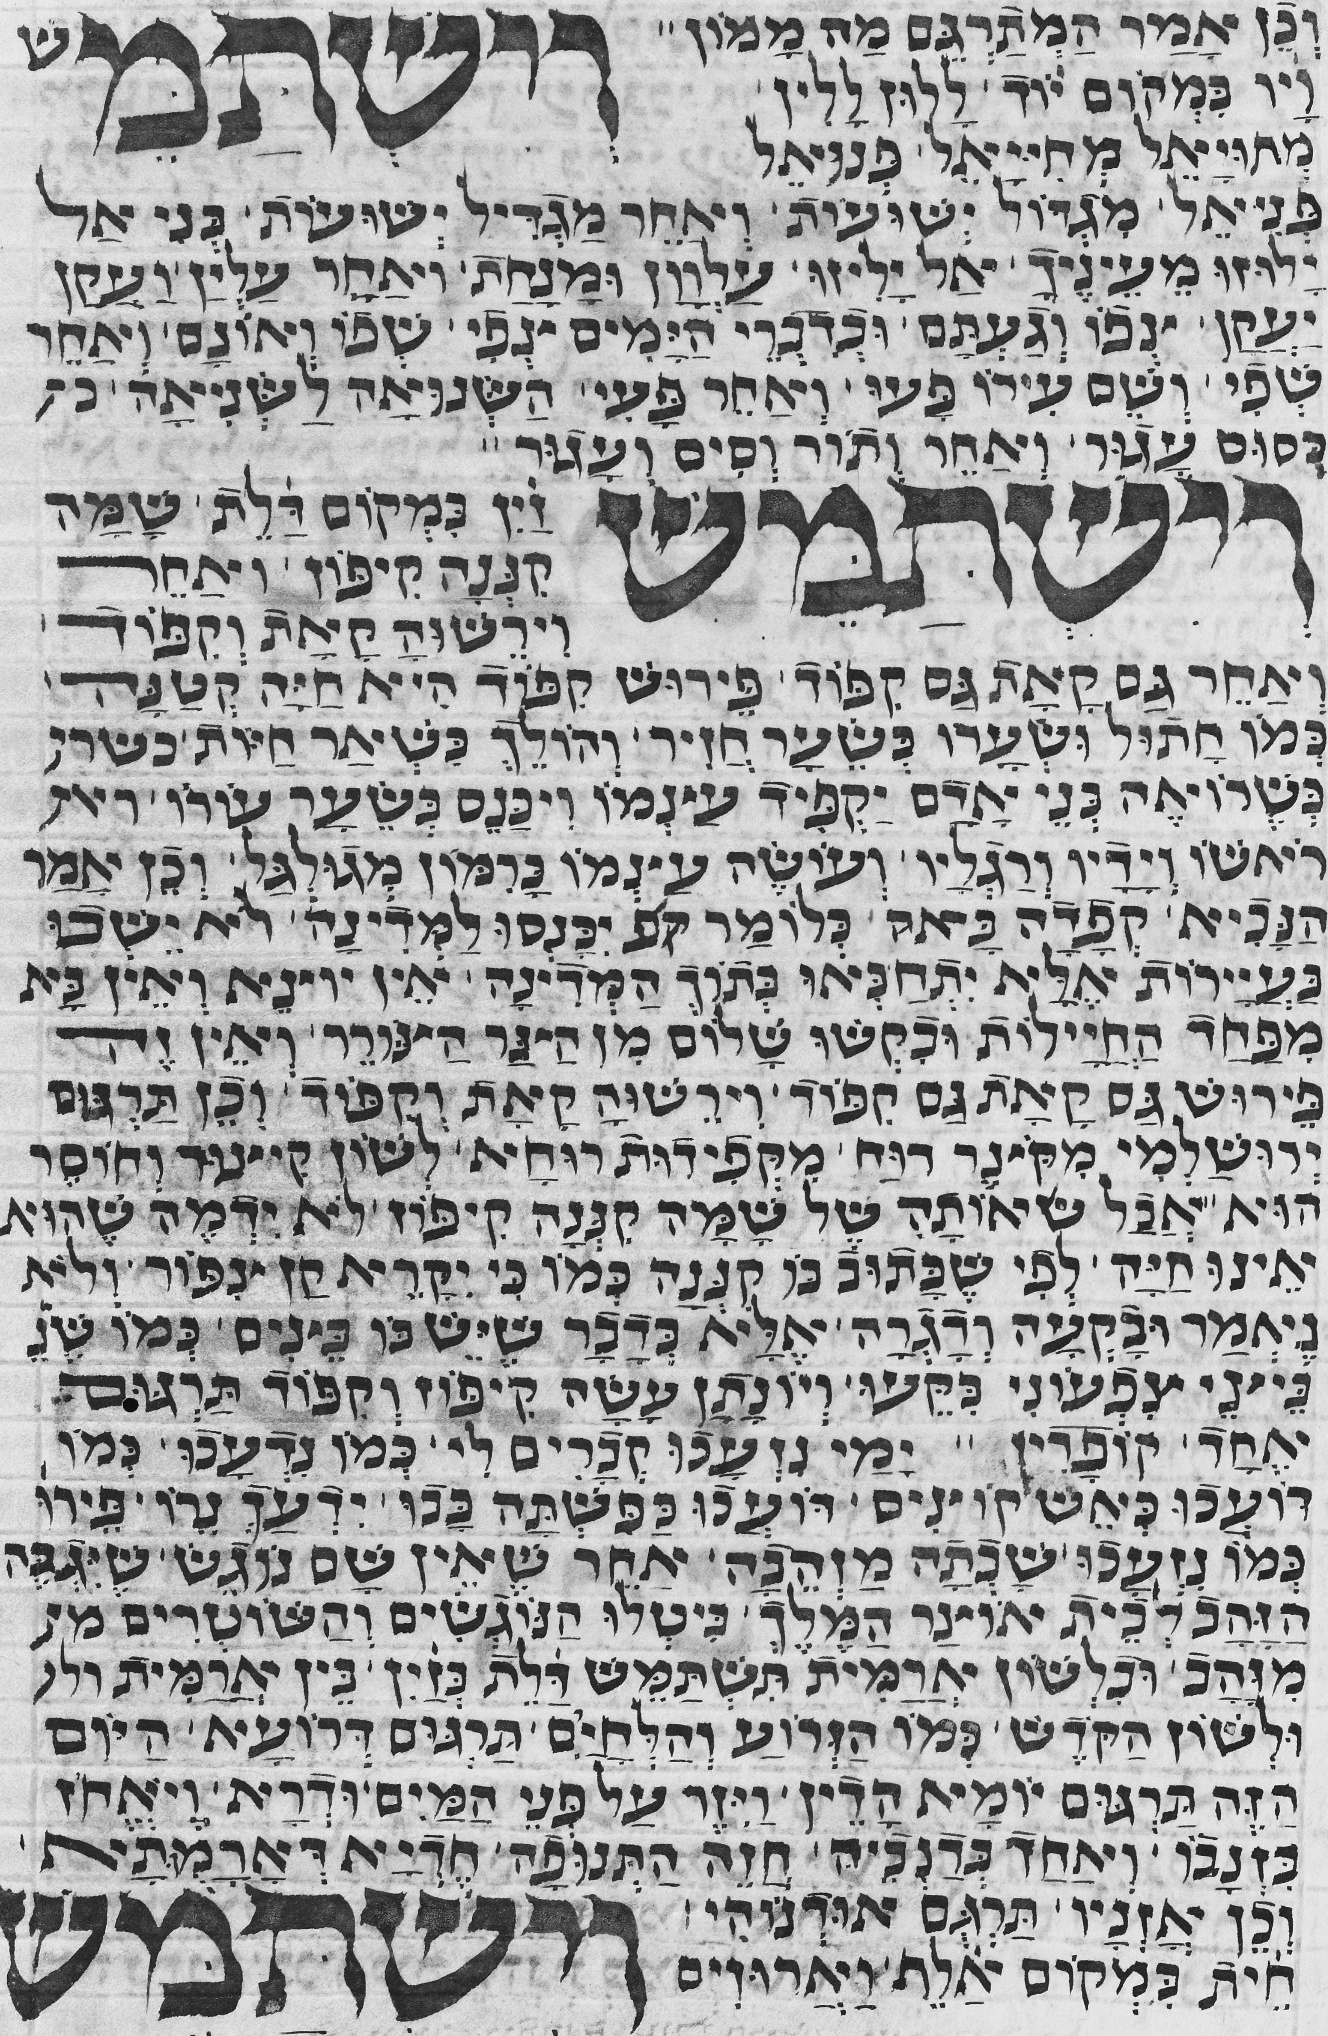 וְכֵן אָמַר הַמְתַרְגֵּם מַה מָמוֹן
וְתִשְׁתַּמֵּשׁ
וָיו בִּמְקוֹם יוֹד לָלוּז לָלִין
מְחוּיָאֵל מְחִיּיָאֵל פְּנוּאֵל
פְּנִיאֵל מִגְדּוֹל יְשׁוּעוֹת וְאַחֵר מַגְדִּיל יְשׁוּעוֹת בְּנִי אַל
יָלוּזוּ מֵעֵינֶיךָ אַל יַלִיזוּ עַלְוָון וּמָנָחַת וְאַחֵר עַלְיָן וַעֲקָן
יַעֲקָן צְפוֹ וְגַעְתָּם וּבְדִבְרֵי הַיָּמִים צְפִי שְׁפוֹ וְאוֹנָם וְאַחֵר
שְׁפִי וְשֵׁם עִירוֹ פָּעוּ וְאַחֵר פָּעִי הַשְּׂנוּאָה לַשְּׂנִיאָה כי
כְּסוּס עָגוּר וְאַחֵר וְתוֹר וְסִים וְעָגוּר
וְתִשְׁתַּמֵּשׁ
זַיִן בִּמְקוֹם דָלֶת שָׁמָּה
קִנְּנָה קִיפּוֹז וְאַחֵר
וִירֵשׁוּהָ קָאַת וְקִפּוֹד
וְאַחֵר גַּם קָאַת גַּם קִפּוֹד פֵּירוּשׁ קִפּוֹד הִיא חַיָּה קְטַנָּה
כְּמוֹ חָתוּל וּשְׂעָרוֹ כִּשְׂעַר חֲזִיר וְהוֹלֵךְ כִּשְׁאַר חַיּוֹת כשרו
כְּשֶׁרוֹאֶה בְּנֵי אָדָם יַקְפִּיד עַצְמוֹ וְיִכָּנֵס בִּשְׂעַר עוֹרוֹ רא
רֹאשׁוֹ וְיָדָיו וְרַגְלָיו וְעוֹשֶׂה עַצְמוֹ כָּרִמּוֹן מְגוּלְגָּל וְכֵן אָמַר
הַנָּבִיא קְפָדָה בָּא כְּלוֹמַר קפ יִכָּנְסוּ לַמְּדִינָה לֹא יֵשְׁבוּ
בַּעֲיָירוֹת אֶלָּא יִתְחַבְּאוּ בְּתוֹךְ הַמְּדִינָה אֵין יוֹצֵא וְאֵין בָּא
מִפַּחַד הַחֲיָילוֹת וּבִקְשׁוּ שָׁלוֹם מִן הַצַּר הַצּוֹרֵר וְאֵין זֶה
פֵּירוּשׁ גַּם קָאַת גַּם קִפּוֹד וִירֵשׁוּהָ קָאַת וְקִפּוֹד וְכֵן תַּרְגּוּם
יְרוּשַׁלְמִי מִקֹּצֶר רוּחַ מִקְּפִידוּת רוּחָא לְשׁוֹן קִיצּוּר וְחוֹסֶר
הוּא אֲבָל אוֹתָהּ שֶׁל שָׁמָּה קִנְּנָה קִיפּוֹז לֹא יִדְמֶה שֶׁהוּא
אֵינוּ חַיָּה לְפִי שֶׁכָּתוּב בּוֹ קִנְּנָה כְּמוֹ כִּי יִקָּרֵא קַן צִפּוֹר וְלֹא
נֶאֱמַר וּבָקְעָה וְדָגְרָה אֶלָּא בְּדָבָר שֶׁיֵּשׁ בּוֹ בֵּצִים כְּמוֹ שֶׁנֶּ
בֵּיצֵי צִפְעוֹנִי בִּקֵּעוּ וְיוֹנָתָן עָשָׂה קִיפּוֹז וְקִפּוֹד תַּרְגּוּם
אֶחָד קוּפָּדִין יָמַי נִזְעָכוּ קְבָרִים לִי כְּמוֹ נִדְעָכוּ כְּמוֹ
דּוֹעֲכוּ כְּאֵשׁ קוֹצִים דּוֹעֲכוּ כַּפִּשְׁתָּה כָּבוּ יִדְעַךְ נֵרוֹ פֵּירוּ
כְּמוֹ נִזְעָכוּ שָׁבְתָה מַדְהֵבָה אַחַר שֶׁאֵין שָׁם נוֹגֵשׂ שֶׁיִּגְבֶּה
הַזָּהָב לְבֵית אוֹצַר הַמֶּלֶךְ בִּיטְלוּ הַנּוֹגְשִׂים וְהַשּׁוֹטְרִים מ
מִזָּהָב וּבִלְשׁוֹן אֲרַמִּית תִּשְׁתַּמֵּשׁ דָּלֶת בְּזַיִן בֵּין אֲרַמִּית ול
וּלְשׁוֹן הַקֹּדֶשׁ כְּמוֹ הַזְּרוֹעַ וְהַלְּחָיַיִם תַּרְגּוּם דְּרוֹעָא הַיּוֹם
הַזֶּה תַּרְגּוּם יוֹמָא הָדֵין וַיִּזֶר עַל פְּנֵי הַמַּיִם וּדְרָא וֶיֱאֱחֹז
בִּזְנָבוֹ וְאֲחַד בְּדַנְבֵיהּ חֲזֵה הַתְּנוּפָה חֶדְיָא דְאֲרָמוּתָא
וְכֵן אָזְנָיו תַּרְגֵּם אוּדְנוֹהִי
וְתִשְׁתַּמֵּשׁ
חֵית בִּמְקוֹם אָלֶף וַאֲרוּזִים